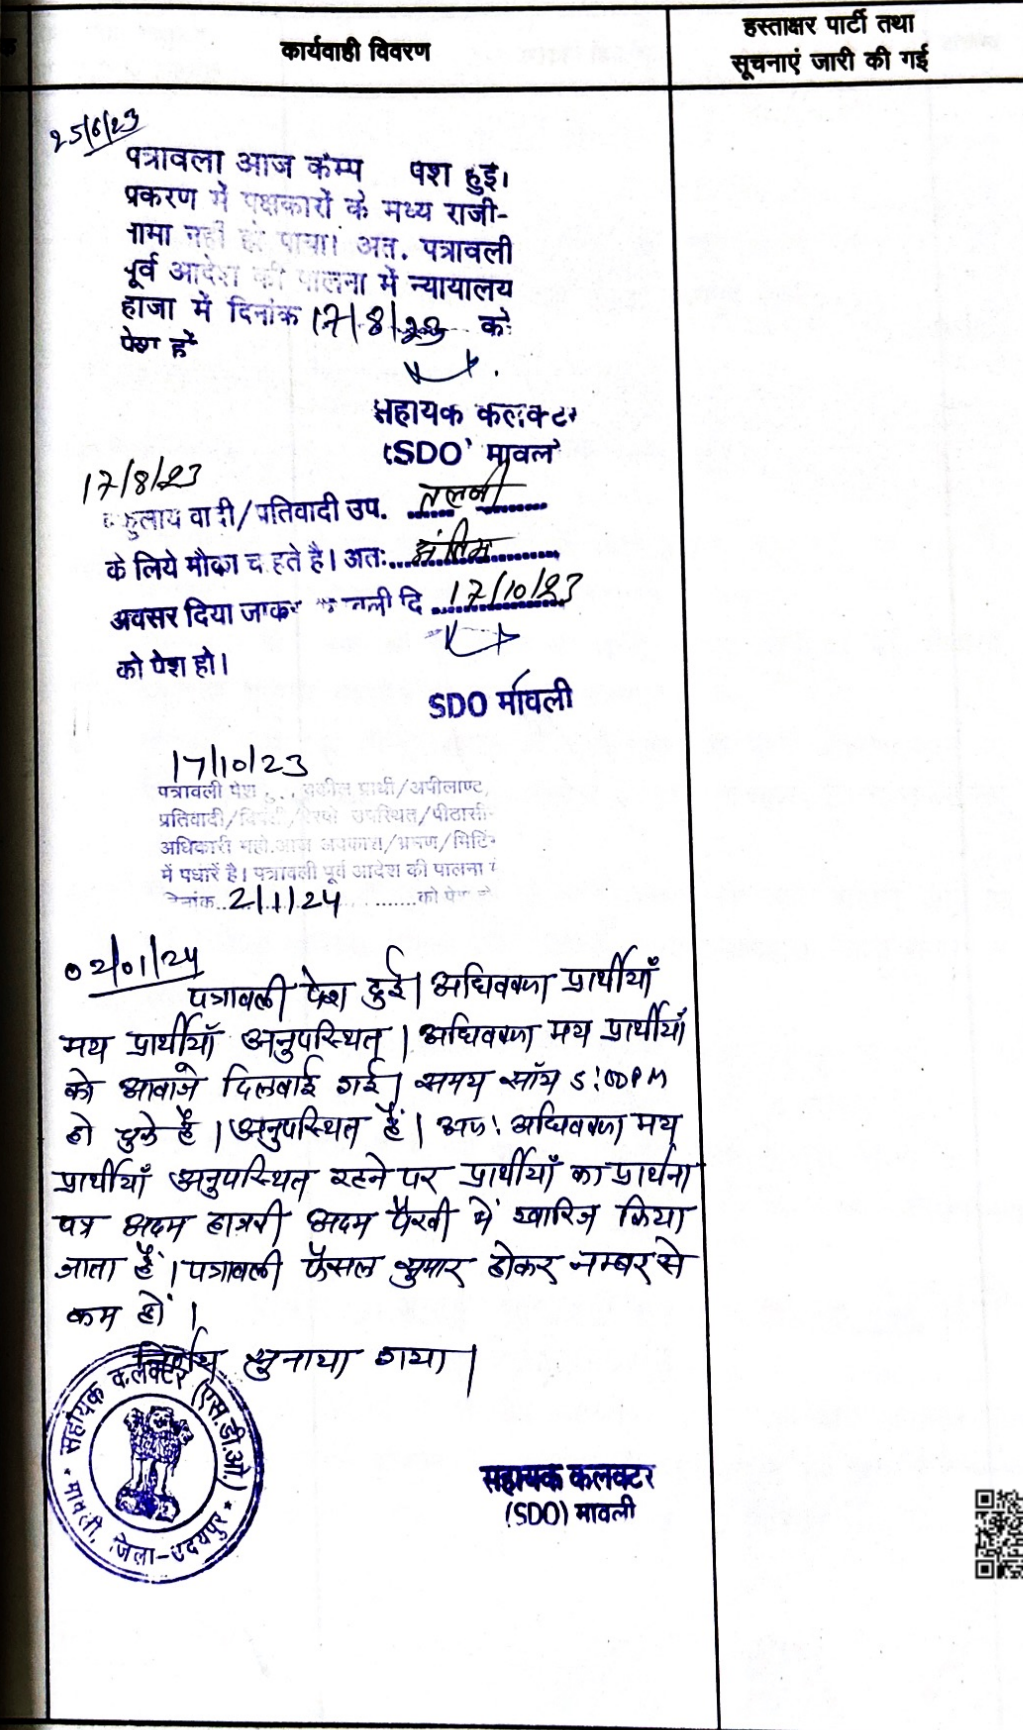 कार्यवाही विवरण
हस्ताक्षर पार्टी तथा
सूचनाएं जारी की गई
25/6/23
पत्रावला आज कैम्प पेश हुई।
प्रकरण में पक्षकारों के मध्य राजी-
नामा नहीं हो पाया। अत. पत्रावली
पूर्व आदेश की पालना में न्यायालय
हाजा में दिनांक 17/8/23 को
पेश हो
सहायक कलक्टर
(SDO) मावली
17/8/23
वादी/प्रतिवादी उप.
के लिये मौका चाहते है। अतः...अंतिम
अवसर दिया जाकर पत्रावली दि 17/10/23
को पेश हो।
SDO मावली
17/10/23
पत्रावली पेश वकील प्रार्थी/अपीलाण्ट,
प्रतिवादी/विपक्षी/रेस्पो उपस्थित/पीठासीन
अधिकारी महो.आज अवकाश/भ्रमण/मिटिंग
में पधारें है। पत्रावली पूर्व आदेश की पालना में
दिनांक..2/1/24 ........को पेश हो
02/01/24
पत्रावली पेश हुई। अधिवक्ता प्रार्थीयाँ
मय प्रार्थीयाँ अनुपस्थित। अधिवक्ता मय प्रार्थीयाँ
को आवाजे दिलवाई गई। समय सॉय 5:00PM
हो चुके है। अनुपस्थित हैं। अतः अधिवक्ता मय
प्रार्थीयाँ अनुपस्थित रहने पर प्रार्थीयाँ का प्रार्थना
पत्र अदम हाजरी अदम पैरवी में खारिज किया
जाता हैं। पत्रावली फैसल शुमार होकर नम्बर से
कम हों।
निर्णय सुनाया गया।
सहायक कलक्टर (एस.डी.ओ.)
मावली, जिला-उदयपुर
सहायक कलक्टर
(SDO) मावली